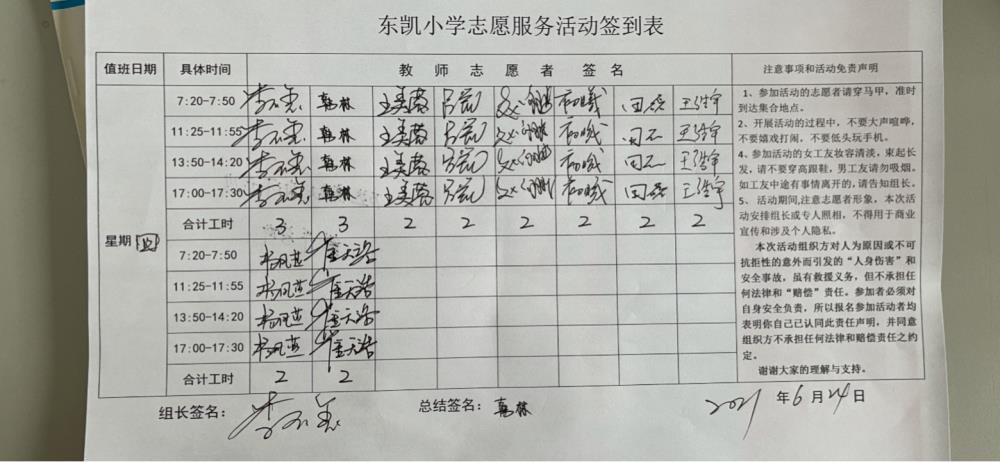 东凯小学志愿服务活动签到表
值班日期 具体时间 教师志愿者签名 注意事项和活动免责声明
7:20-7:50 韩林 王美蓉 田磊 王浩宇
11:25-11:55 韩林 王美蓉 田磊 王浩宇
13:50-14:20 韩林 王美蓉 田磊 王浩宇
17:00-17:30 韩林 王美蓉 田磊 王浩宇
合计工时 3 3 2 2 2 2 2 2
星期 四
7:20-7:50 杨凤英 金天浩
11:25-11:55 杨凤英 金天浩
13:50-14:20 杨凤英 金天浩
17:00-17:30 杨凤英 金天浩
合计工时 2 2
1、参加活动的志愿者请穿马甲，准时
到达集合地点。
2、开展活动的过程中，不要大声喧哗，
不要嬉戏打闹，不要低头玩手机。
4、参加活动的女工友妆容清淡，束起长
发，请不要穿高跟鞋，男工友请勿吸烟。
如工友中途有事情离开的，请告知组长。
5、活动期间，注意志愿者形象，本次活
动安排组长或专人照相，不得用于商业
宣传和涉及个人隐私。
本次活动组织方对人为原因或不可
抗拒性的意外而引发的“人身伤害”和
安全事故，虽有救援义务，但不承担任
何法律和“赔偿”责任。参加者必须对
自身安全负责，所以报名参加活动者均
表明你自己已认同此责任声明，并同意
组织方不承担任何法律和赔偿责任之约
定。
谢谢大家的理解与支持。
组长签名： 总结签名：韩林 2021年6月24日